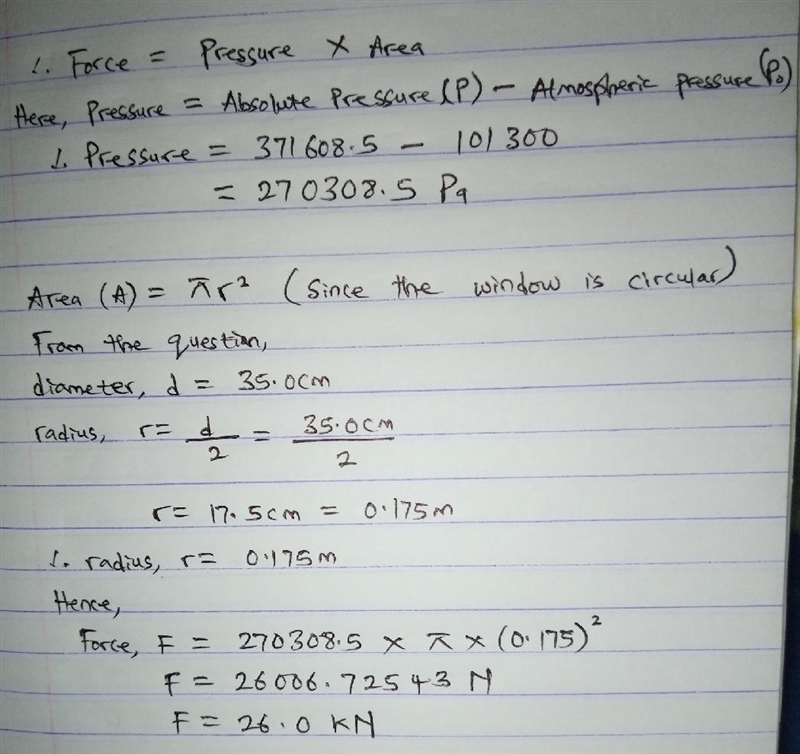 ∴ Force = Pressure × Area
Here, Pressure = Absolute Pressure (P) - Atmospheric pressure (P₀)
∴ Pressure = 371608.5 - 101300
= 270308.5 Pa
Area (A) = πr² (Since the window is circular)
From the question,
diameter, d = 35.0cm
radius, r = d/2 = 35.0cm/2
r = 17.5cm = 0.175m
∴ radius, r = 0.175m
Hence,
Force, F = 270308.5 × π × (0.175)²
F = 26006.72543 N
F = 26.0 kN